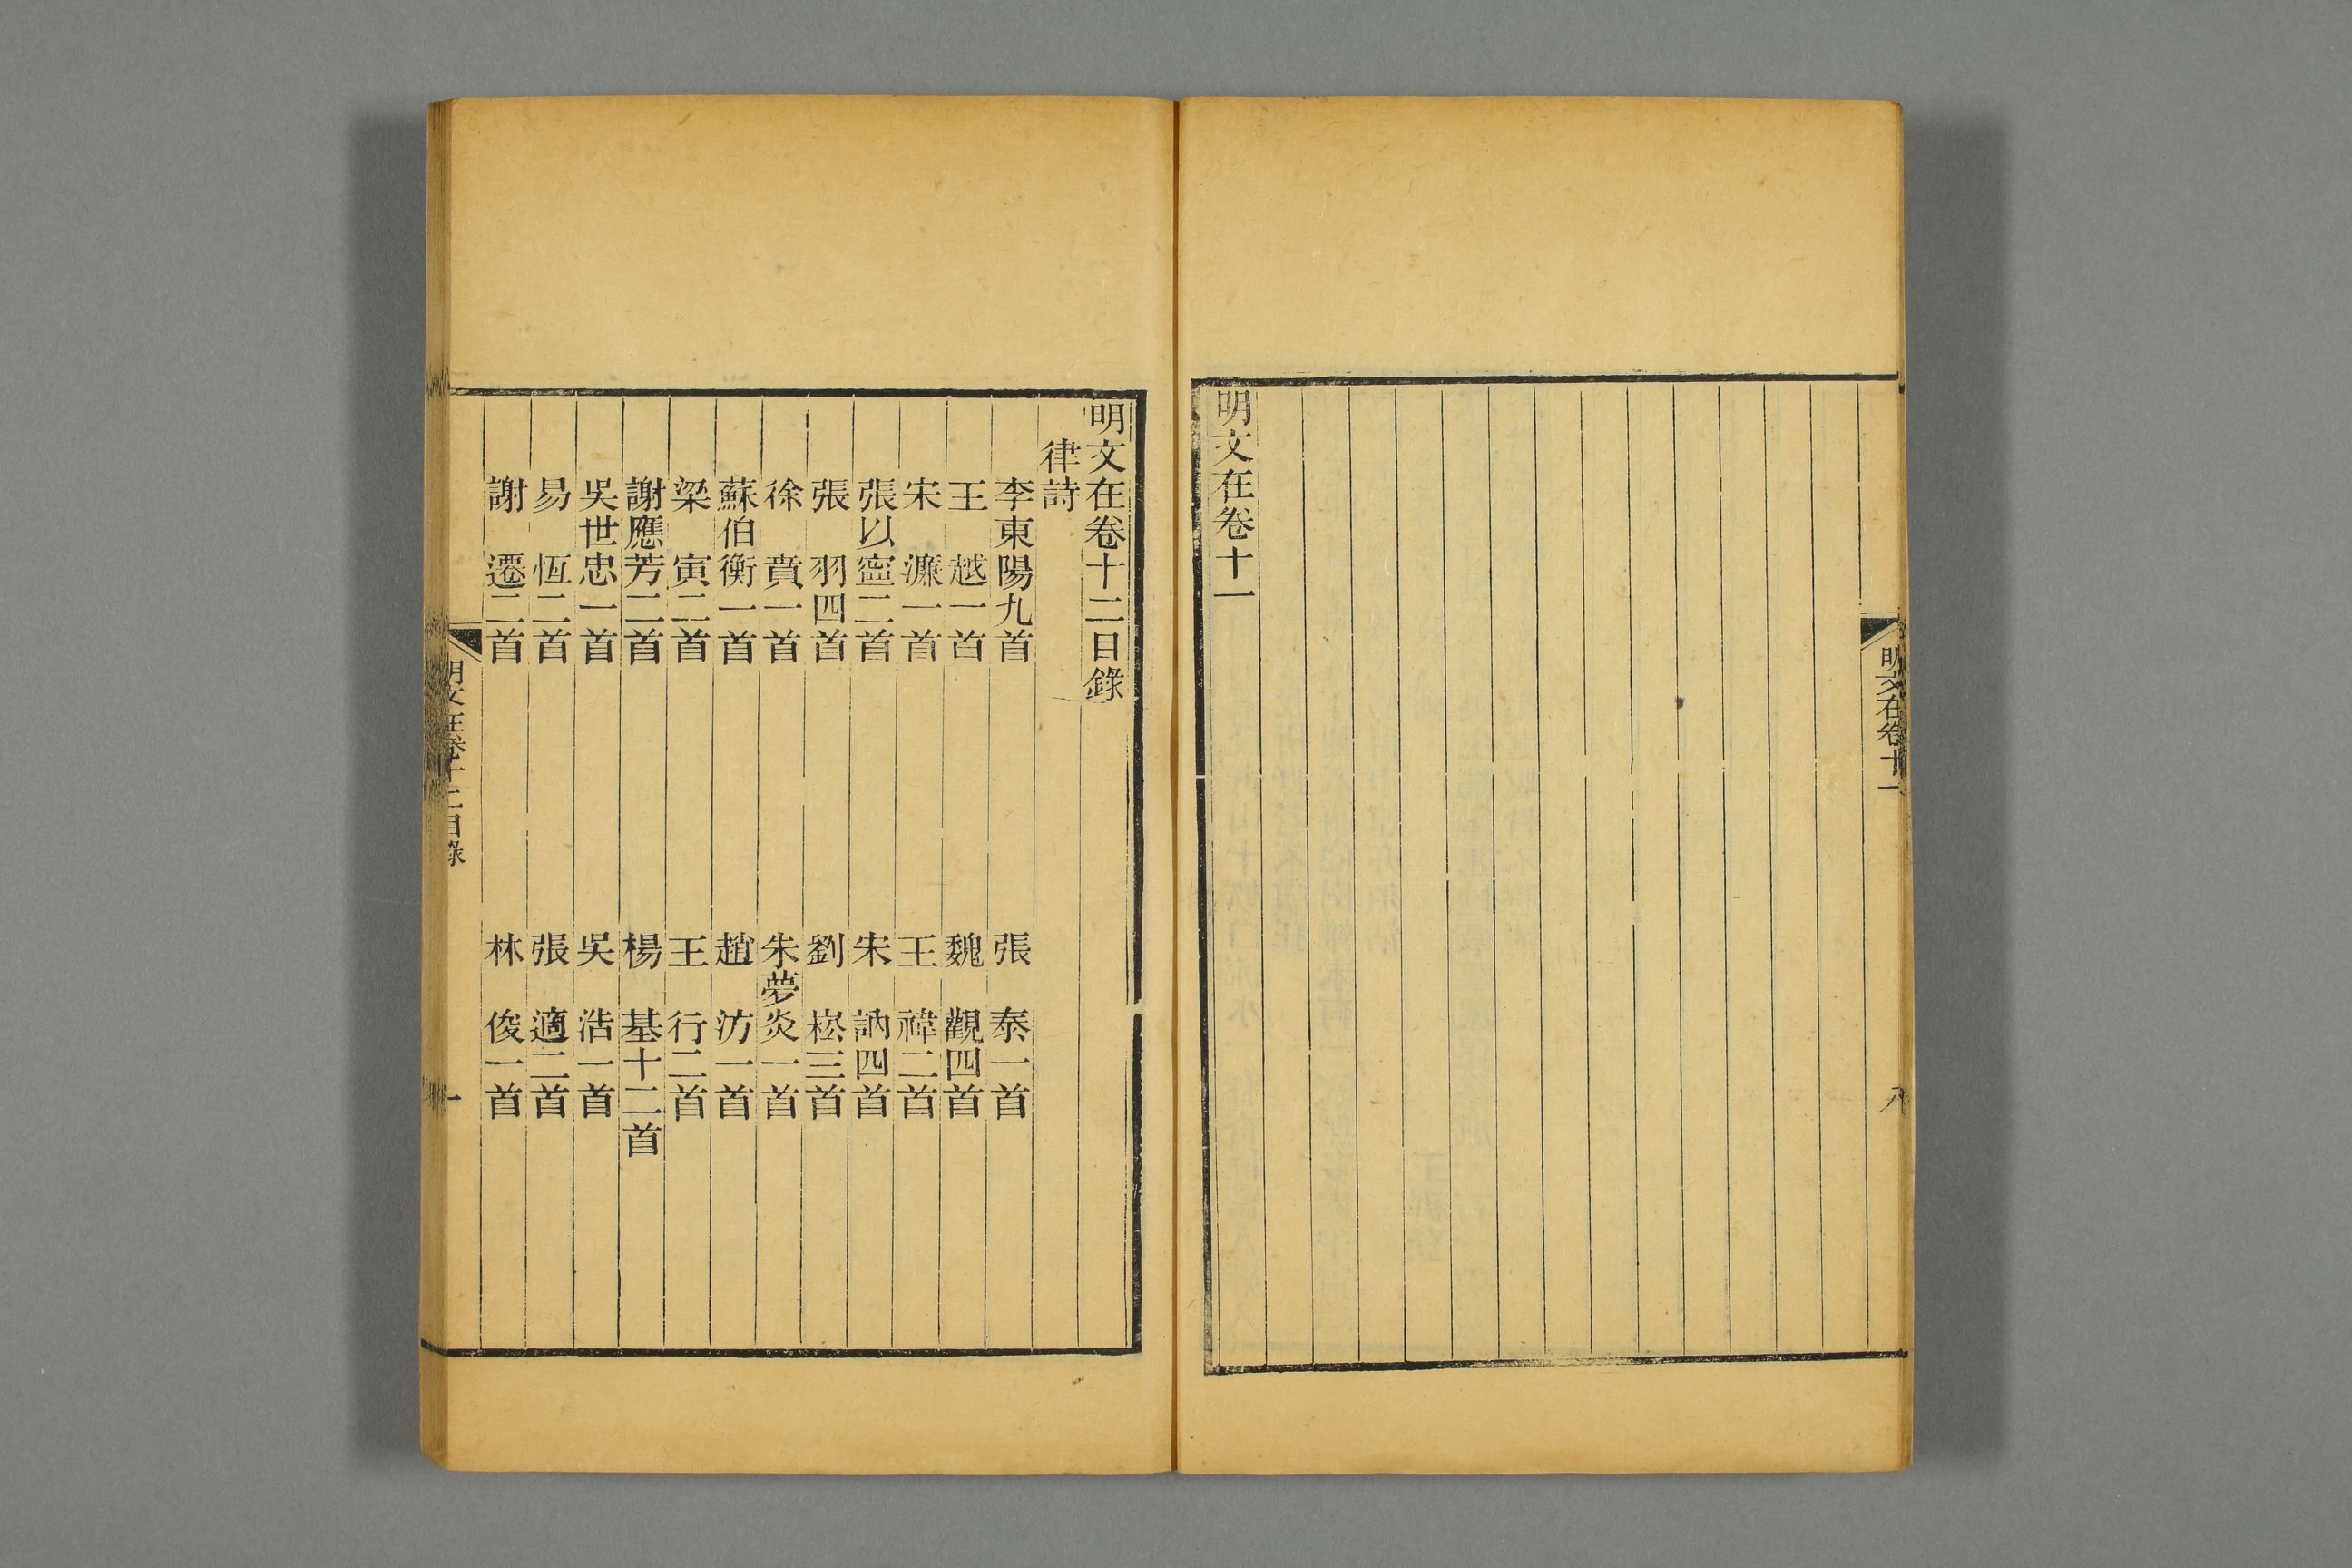 明文在卷十一
八
明文在卷十一
明文在卷十二目錄
律詩
李東陽九首 張泰一首
王越一首 魏觀四首
宋濂一首 王禕二首
張以寧二首 宋訥四首
張羽四首 劉崧三首
徐賁一首 朱夢炎一首
蘇伯衡一首 趙汸一首
梁寅二首 王行二首
謝應芳二首 楊基十二首
吳世忠一首 吳浩一首
易恆二首 張適二首
謝遷二首 林俊一首
明文在卷十二目錄
一